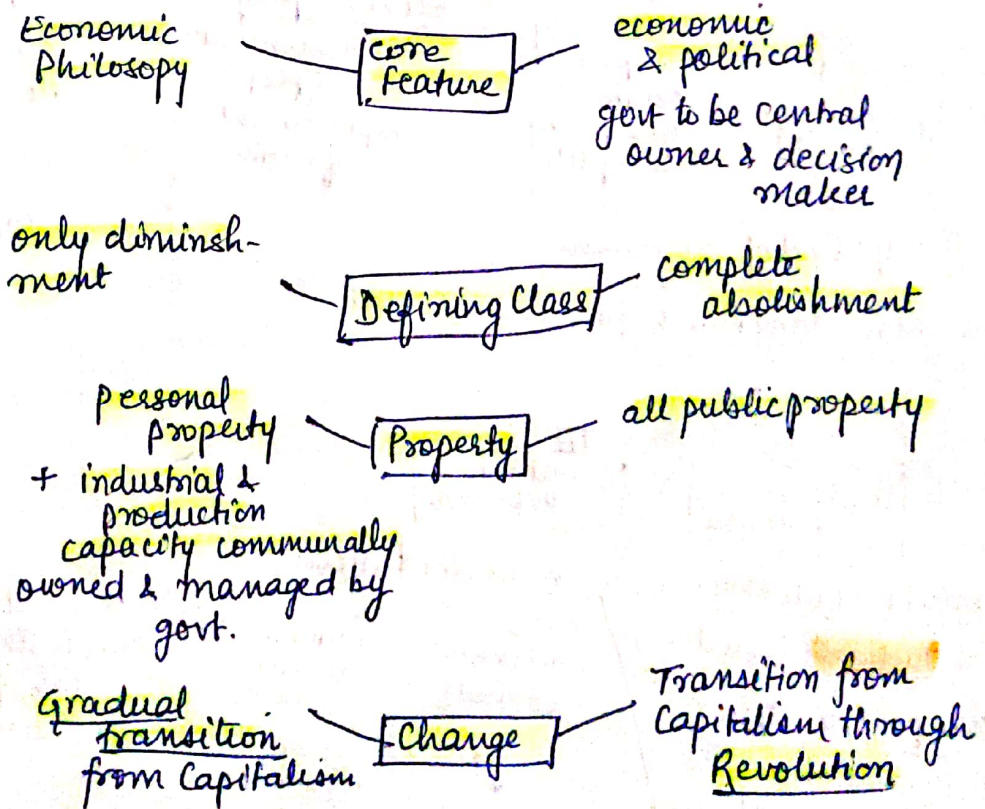 Economic
Philosopy
core
feature
economic
& political
govt to be central
owner & decision
maker
only diminsh-
ment
Defining Class
complete
abolishment
personal
property
+ industrial &
production
capacity communally
owned & managed by
govt.
Property
all public property
Gradual
transition
from Capitalism
Change
Transition from
Capitalism through
Revolution